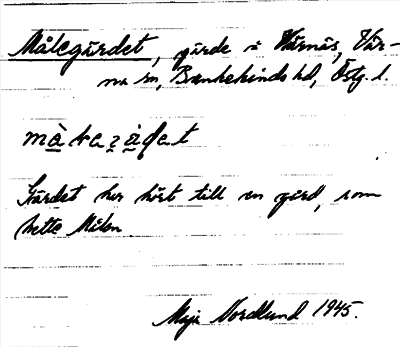 Målegärdet, gärde i Värnäs, Vär-
na sn, Bankekinds hd, Östg. l.
Gärdet har hört till en gård, som
hette Målen.
Maja Nordlund 1945.